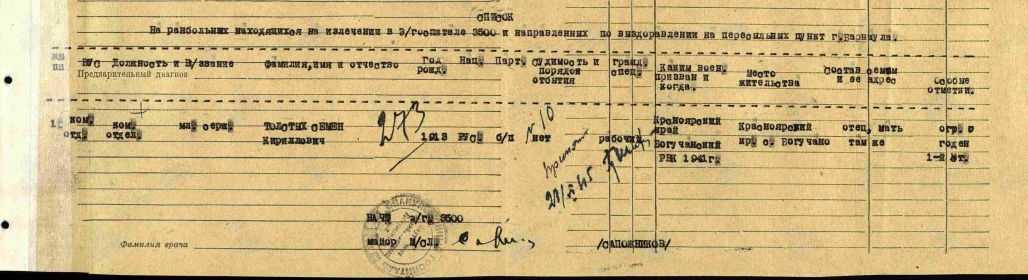 СПИСОК
На ранбольных находящихся на излечении в Э/госпитале 3500 и направленных по выздоровлении на пересыльных пункт г.Барнаула.
№№ пп ВУС Должность и В/звание фамилия,имя и отчество Год рожд. Нац. Парт. Судимость и порядок отбытия гражд. спец. Каким воен. призван и когда. Место жительства Состав семьи и ее адрес Особые отметки.
Предварительный диагноз
1. ком. отд. ком. отдел. мл. серж. ТОЛСТЫХ СЕМЕН Кириллович 273 1913 РУС. б/п нет рабочий Красноярский край Богучанский РВК 1941г. Красноярский кр. с. Богучано отец, мать там же огр. годен 1-й ст.
№10
НАЧ. э/г. 3500
майор М/СЛ. /САПОЖНИКОВ/
Фамилия врача